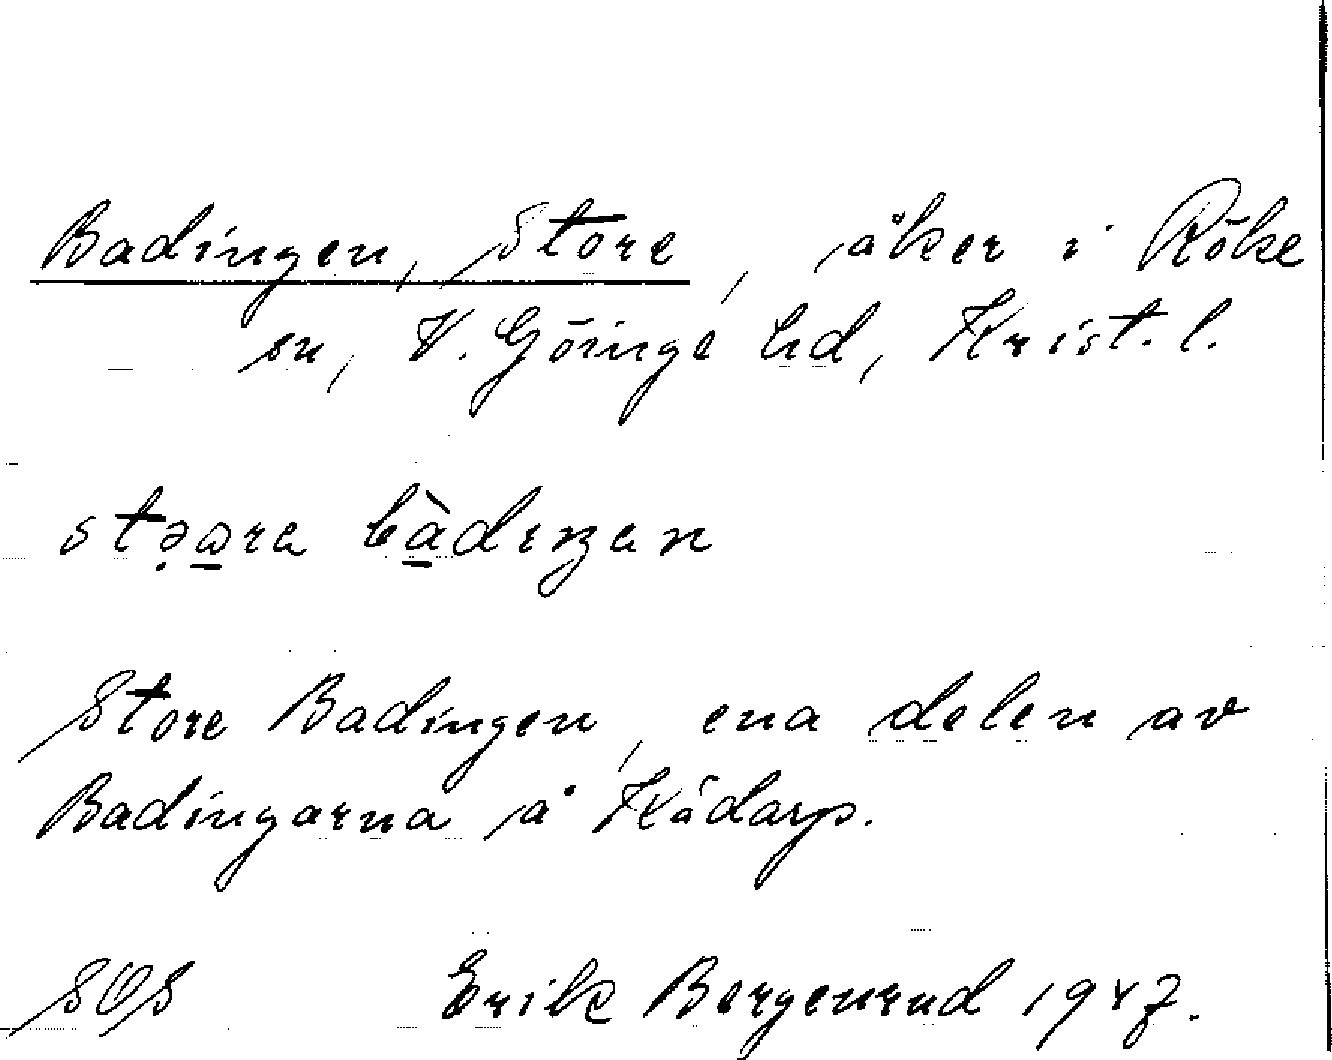 Badingen, Store, åker i Röke
sn, V. Göinge hd, Krist. l.
Store Badingen, ena delen av
Badingarna å Kådarp.
SOS Erik Borgenrud 1947.